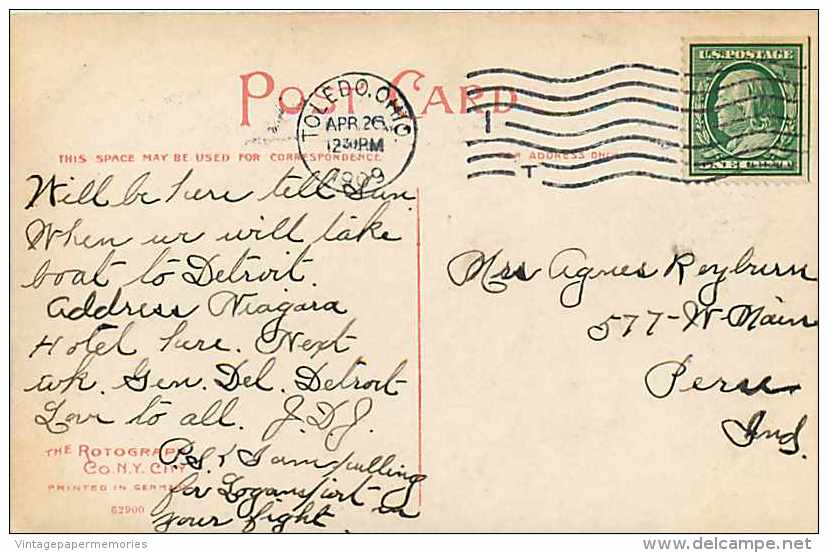 POST CARD
U.S. POSTAGE
TOLEDO, OHIO
APR. 26
12 30 PM
1909
THIS SPACE MAY BE USED FOR CORRESPONDENCE
FOR ADDRESS ONLY
ONE CENT
Will be here till Sun.
When we will take
boat to Detroit.
Address Niagara
Hotel here. Next
wk. Gen. Del. Detroit
Love to all. J.D.J.
P.S. I am pulling
for Logansport in
your fight.
Mrs Agnes Reyburn
577-W-Main
Peru
Ind.
THE ROTOGRAPH
CO. N.Y. CITY
PRINTED IN GERMANY
62900
Vintagepapermemories
delcampe.net